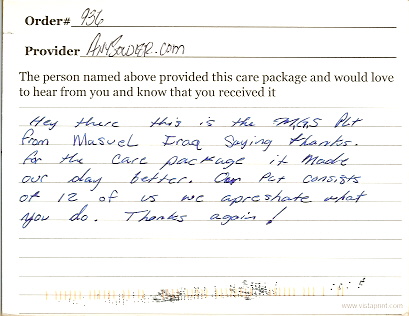 Order# 936
Provider AnySolider.com
The person named above provided this care package and would love
to hear from you and know that you received it
Hey there this is the M.G.S Plt
from Masuel Iraq Saying thanks.
for the care package it Made
our day better. Our Plt consists
of 12 of us we apreshate what
you do. Thanks again!
www.vistaprint.com